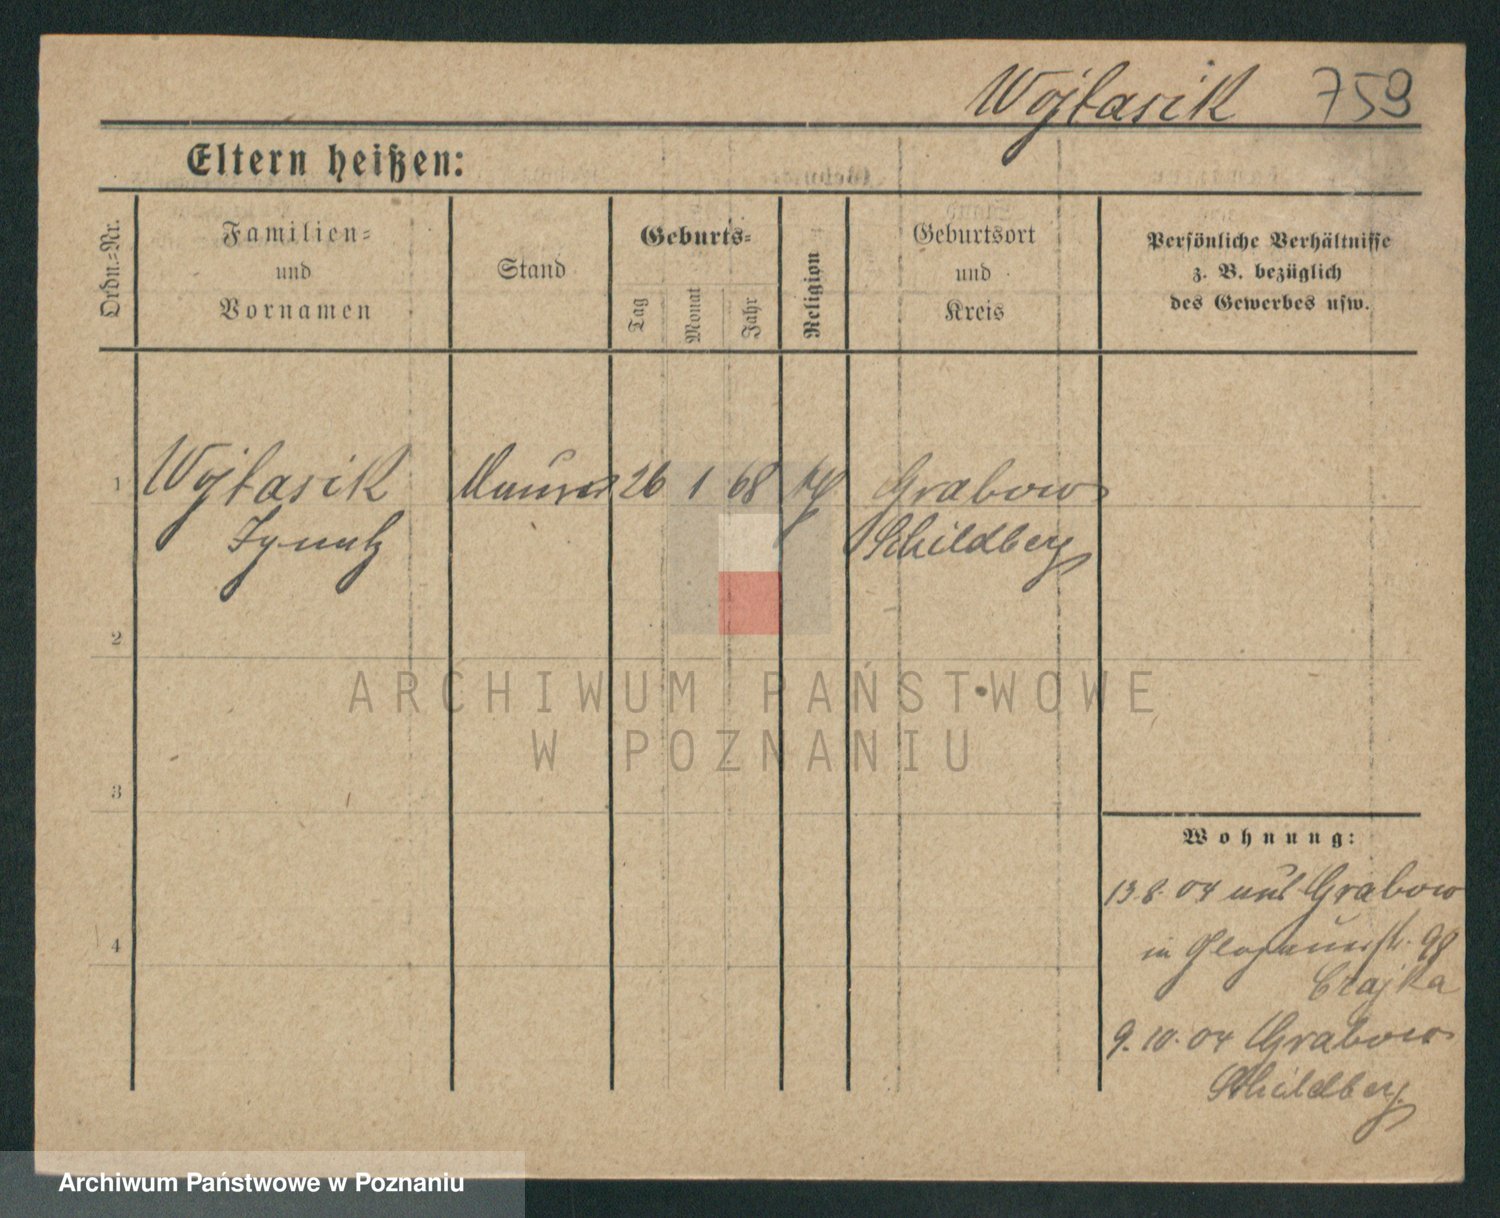 Wojtasik 759
Eltern heißen:
Ordn.=Nr.
Familien=
und
Vornamen
Stand
Geburts=
Tag
Monat
Jahr
Religion
Geburtsort
und
Kreis
Persönliche Verhältnisse
z. B. bezüglich
des Gewerbes usw.
1 Wojtasik Maurer 26 1 68 kth Grabow
Ignatz Schildberg
2
3
4
ARCHIWUM PAŃSTWOWE
W POZNANIU
Wohnung:
13.8.04 aus Grabow
in Glogauerstr. 98
Czajka
9.10.04 Grabow
Schildberg
Archiwum Państwowe w Poznaniu